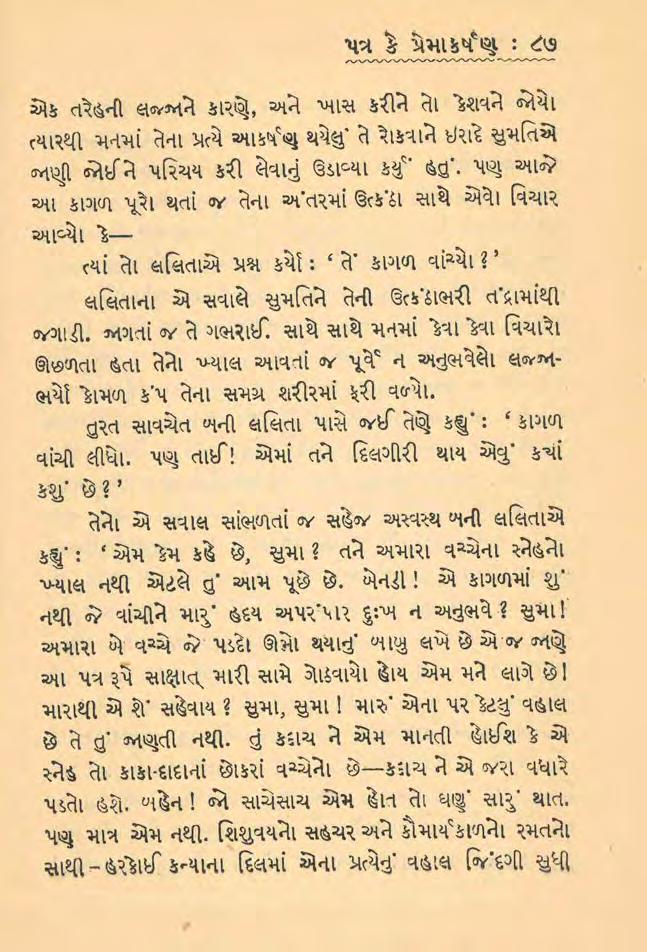 પત્ર કે પ્રેમાકર્ષણ : ૮૭
એક તરેહની લજ્જાને કારણે, અને ખાસ કરીને તો કેશવને જોયો
ત્યારથી મનમાં તેના પ્રત્યે આકર્ષણ થયેલું તે રોકવાને ઇરાદે સુમતિએ
જાણી જોઈને પરિચય કરી લેવાનું ઉડાવ્યા કર્યું હતું. પણ આજે
આ કાગળ પૂરો થતાં જ તેના અંતરમાં ઉત્કંઠા સાથે એવો વિચાર
આવ્યો કે—
ત્યાં તો લલિતાએ પ્રશ્ન કર્યો : ‘ તેં કાગળ વાંચ્યો ? ’
લલિતાના એ સવાલે સુમતિને તેની ઉત્કંઠાભરી તંદ્રામાંથી
જગાડી. જાગતાં જ તે ગભરાઈ. સાથે સાથે મનમાં કેવા કેવા વિચારો
ઊછળતા હતા તેનો ખ્યાલ આવતાં જ પૂર્વે ન અનુભવેલો લજ્જા-
ભર્યો કોમળ કંપ તેના સમગ્ર શરીરમાં ફરી વળ્યો.
તુરત સાવચેત બની લલિતા પાસે જઈ તેણે કહ્યું : ‘ કાગળ
વાંચી લીધો. પણ તાઈ ! એમાં તને દિલગીરી થાય એવું ક્યાં
કશું છે ? ’
તેનો એ સવાલ સાંભળતાં જ સહેજ અસ્વસ્થ બની લલિતાએ
કહ્યું : ‘ એમ કેમ કહે છે, સુમા ? તને અમારા વચ્ચેના સ્નેહનો
ખ્યાલ નથી એટલે તું આમ પૂછે છે. બેનડી ! એ કાગળમાં શું
નથી જે વાંચીને મારું હૃદય અપરંપાર દુઃખ ન અનુભવે ? સુમા !
અમારા બે વચ્ચે જે પડદો ઊભો થયાનું બાબુ લખે છે એ જ જાણે
આ પત્ર રૂપે સાક્ષાત્ મારી સામે ગોઠવાયો હોય એમ મને લાગે છે !
મારાથી એ શેં સહેવાય ? સુમા, સુમા ! મારું એના પર કેટલું વહાલ
છે તે તું જાણતી નથી. તું કદાચ ને એમ માનતી હોઈશ કે એ
સ્નેહ તો કાકા-દાદાનાં છોકરાં વચ્ચેનો છે—કદાચ ને એ જરા વધારે
પડતો હશે. બહેન ! જો સાચેસાચ એમ હોત તો ઘણું સારું થાત.
પણ માત્ર એમ નથી. શિશુવયનો સહચર અને કૌમાર્યકાળનો રમતનો
સાથી – હરકોઈ કન્યાના દિલમાં એના પ્રત્યેનું વહાલ જિંદગી સુધી